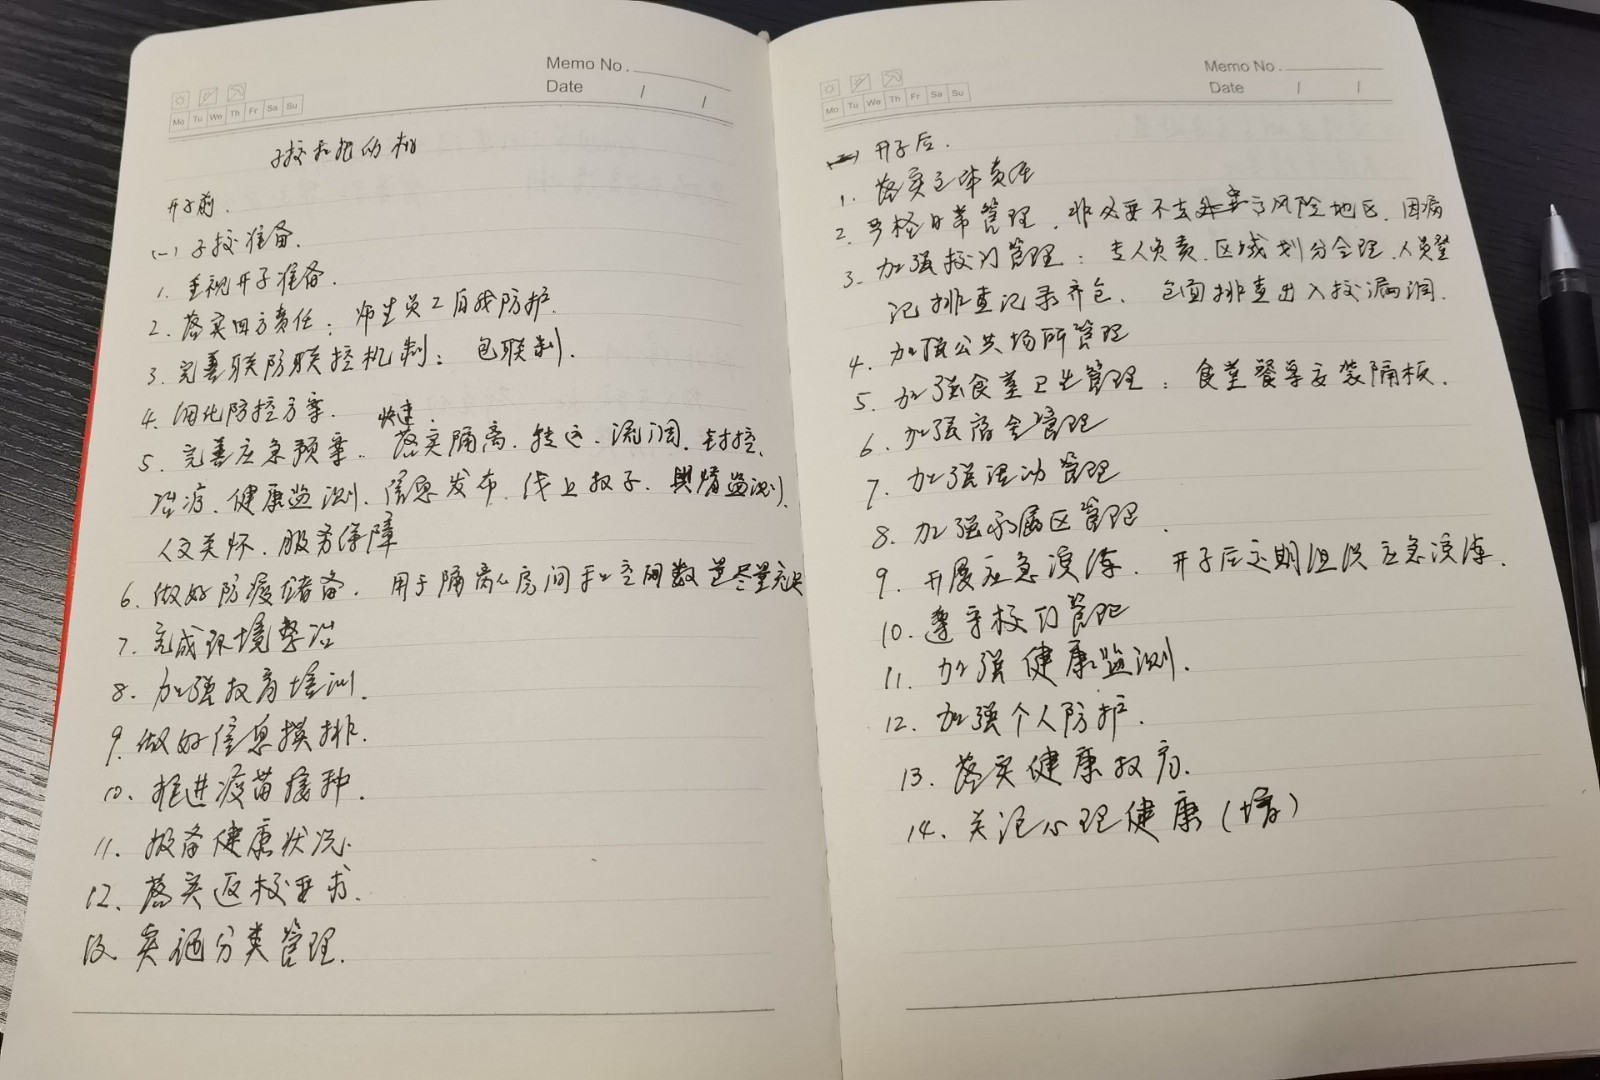 Memo No.
Date / /
Mo Tu We Th Fr Sa Su
开学前.
(一) 学校准备.
1. 重视开学准备.
2. 落实四方责任: 师生员工自我防护.
3. 完善联防联控机制: 包联制.
4. 细化防控方案.
快速.
5. 完善应急预案. 落实隔离. 转运. 流调. 封控.
治疗. 健康监测. 信息发布. 线上教学. 舆情监测.
人文关怀. 服务保障
6. 做好防疫储备. 用于隔离的房间和空间数量尽量充足
7. 完成环境整治
8. 加强教育培训.
9. 做好信息摸排.
10. 推进疫苗接种.
11. 报备健康状况.
12. 落实返校要求.
13. 实施分类管理.
Memo No.
Date / /
Mo Tu We Th Fr Sa Su
(二) 开学后.
1. 落实主体责任
2. 严格日常管理. 非必要不去 风险地区. 因病
3. 加强校门管理: 专人负责. 区域划分合理. 人员登
记排查记录齐全. 全面排查出入校漏洞.
4. 加强公共场所管理
5. 加强食堂卫生管理: 食堂餐桌安装隔板.
6. 加强宿舍管理
7. 加强活动管理
8. 加强家属区管理.
9. 开展应急演练. 开学后定期组织应急演练.
10. 遵守校门管理
11. 加强健康监测.
12. 加强个人防护.
13. 落实健康教育.
14. 关注心理健康